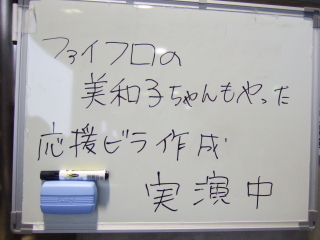 ファイフロの
美和子ちゃんもやった
応援ビラ作成
実演中